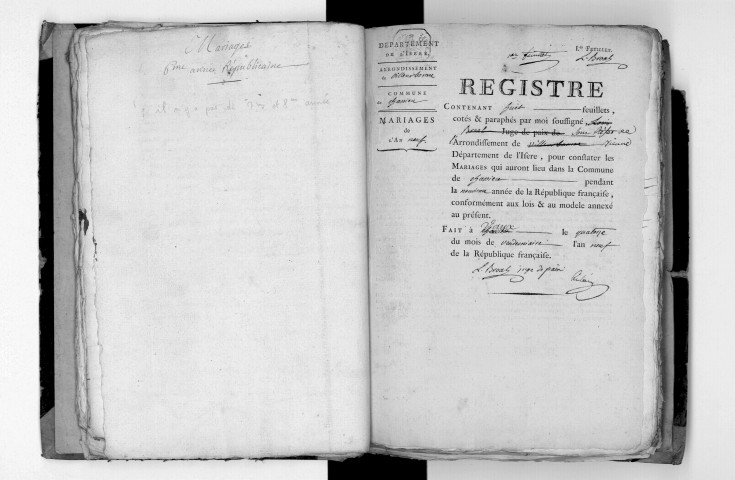 Mariages
6me année Républicaine
il n'y a pas de 7e et 8me année
DÉPARTEMENT
DE L'ISERE.
ARRONDISSEMENT
de villeurbanne
COMMUNE
de Chassieu
MARIAGES
de
L'AN neuf
1er FEUILLET.
1er feuillet
REGISTRE
CONTENANT huit feuillets,
cotés & paraphés par moi soussigné Louis
Juge de paix de Sous
Arrondissement de villeurbanne Vienne
Département de l'Isere, pour constater les
MARIAGES qui auront lieu dans la Commune
de Chassieu pendant
la neuvieme année de la République française,
conformément aux lois & au modele annexé
au présent.
FAIT à le quatorze
du mois de vendemiaire l'an neuf
de la République française.
juge de paix